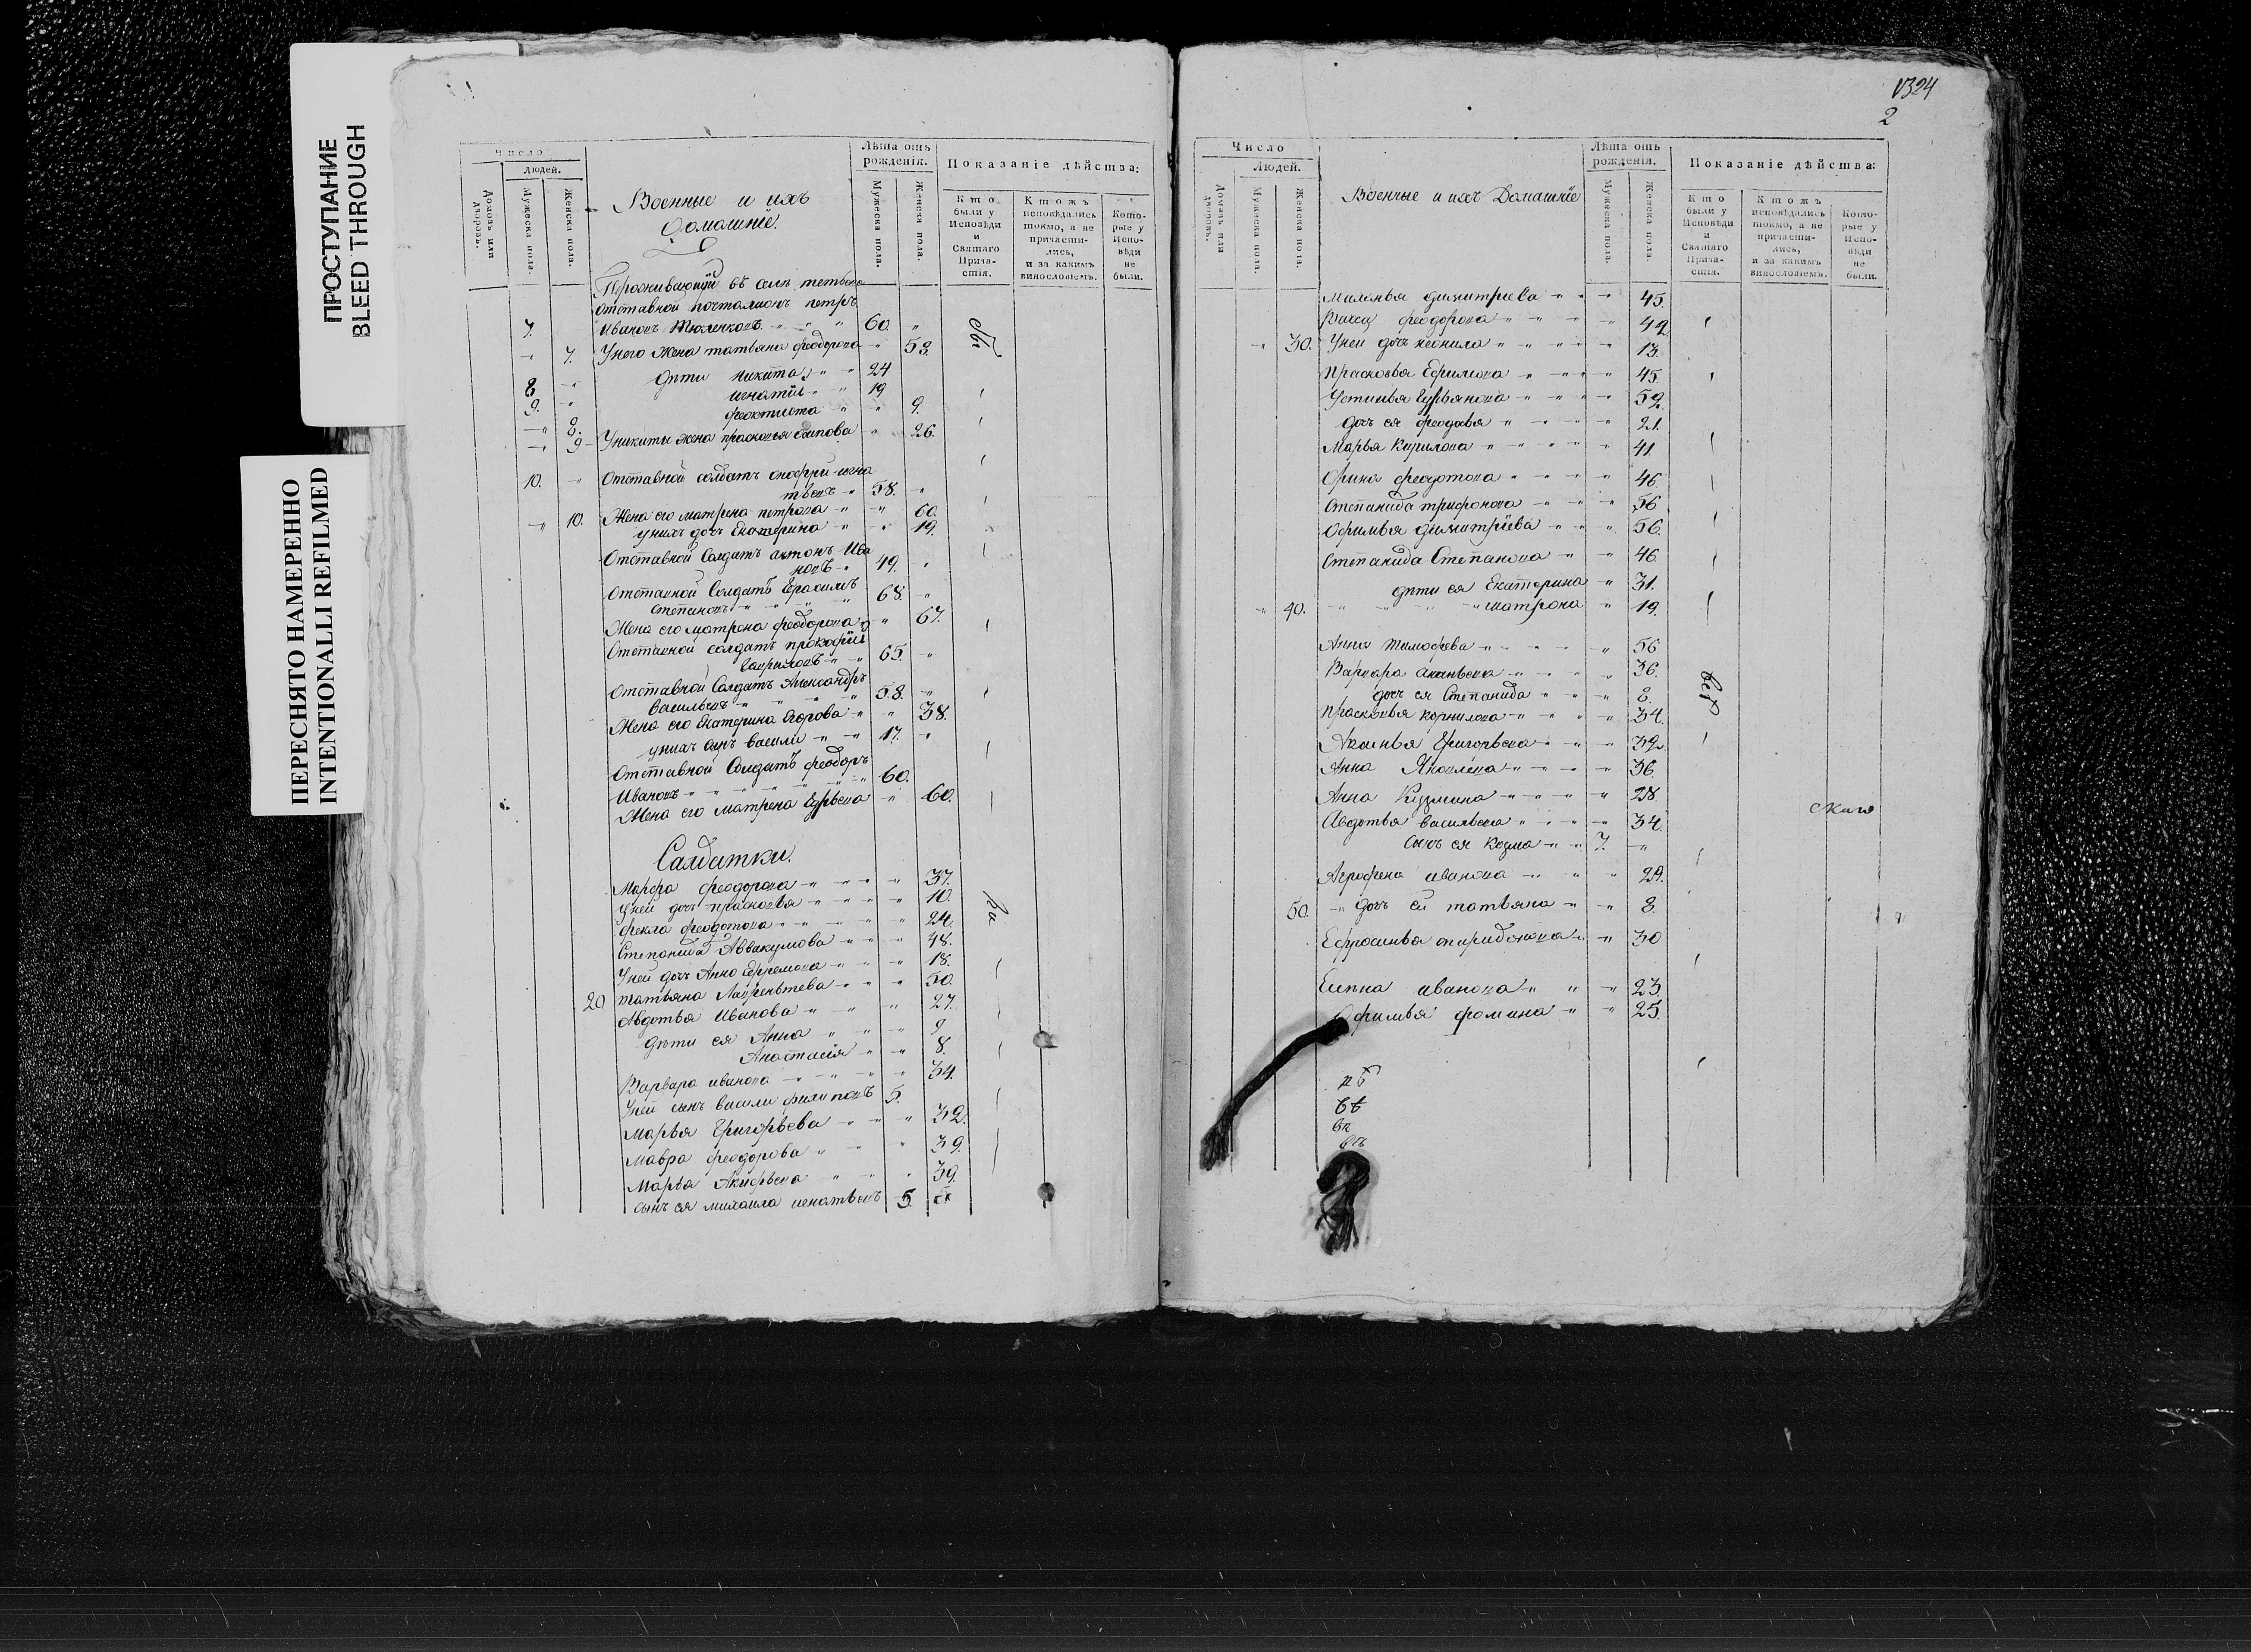 ПРОСТУПАНИЕ
BLEED THROUGH
ПЕРЕСНЯТО НАМЕРЕННО
INTENTIONALLI REFILMED
Число
Людей.
Домовъ или дворовъ.
Мужеска пола.
Женска пола.
Военные и ихъ
Домашніе.
Лѣта отъ рожденія.
Мужеска пола.
Женска пола.
Показаніе дѣйства:
Кто были у Исповѣди и Святаго Прича-стія.
Ктожъ исповѣдались токмо, а не причасти-лись, и за какимъ винословіемъ.
Кото-рые у Испо-вѣди не были.
Проживающій въ селѣ
Отставной почталионъ петръ
7. Ивановъ 60. "
" 7. Унего жена татьяна феодорова " 53.
8. " дѣти никита 24
9. " игнатій 19
" 8. феоктиста " 9.
" 9 Уникиты жена прасковья " 26.
10. " Отставной солдатъ онофрий игна
тьевъ 58. "
" 10. Жена его матрена петрова " 60.
унихъ дочь Екатерина " 19.
Отставной Солдатъ антонъ Ива
новъ 49. "
Отставной Солдатъ Герасимъ
степановъ 68. "
Жена его матрена феодорова " 67.
Отставной солдатъ прокофій
Гавриловъ 65. "
Отставной Солдатъ Александръ
васильевъ 58. "
Жена его Екатерина Егорова " 38.
унихъ сынъ васили 17. "
Отставной Солдатъ феодоръ
Ивановъ 60.
Жена его матрена Гурьева " 60.
Салдатки.
Марфа феодорова " 37.
Уней дочь прасковья " 10.
фекла федотова " 24.
Степанида Аввакумова " 48.
Уней дочь Анна Ефремова " 18.
20 татьяна Лаврентьева " 50.
Авдотья Иванова " 27.
дѣти ея Анна " 9
Анастасія " 8.
Варвара иванова " 34.
Уней сынъ васили филиповъ 5.
Марья Григорьева " 32.
Мавра феодорова " 39.
Марья " 39.
сынъ ея михаила игнатьевъ 5.
1324
2
Число
Людей.
Домовъ или дворовъ.
Мужеска пола.
Женска пола.
Военные и ихъ Домашніе
Лѣта отъ рожденія.
Мужеска пола.
Женска пола.
Показаніе дѣйства:
Кто были у Исповѣди и Святаго Прича-стія.
Ктожъ исповѣдались токмо, а не причасти-лись, и за какимъ винословіемъ.
Кото-рые у Испо-вѣди не были.
Маланья димитриева " 45.
Васса феодорова " 42.
" 30. Уней дочь неонила " 13.
Прасковья Ефимова " 45.
Устинья " 52.
дочь ея феодосья " 21.
Марья Кирилова " 41.
Орина федотова " 46
Степанида трифонова " 56
Офимья димитріева " 56.
Степанида Степанова " 46
дѣти ея Екатерина " 31.
" 40. матрона " 19.
Анна Тимофеева " 56
Варвара " 36.
дочь ея Степанида " 8.
Прасковья корнилова " 34.
Аксинья Григорьева " 32.
Анна Яковлева " 36
Анна Кузмина " 28
Авдотья васильева " 34.
Сынъ ея Козма 7. "
Агрофена иванова " 29.
50. дочь ей татьяна " 8.
Ефросинья спиридонова " 30
Елена иванова " 23.
Офимья фомина " 25.